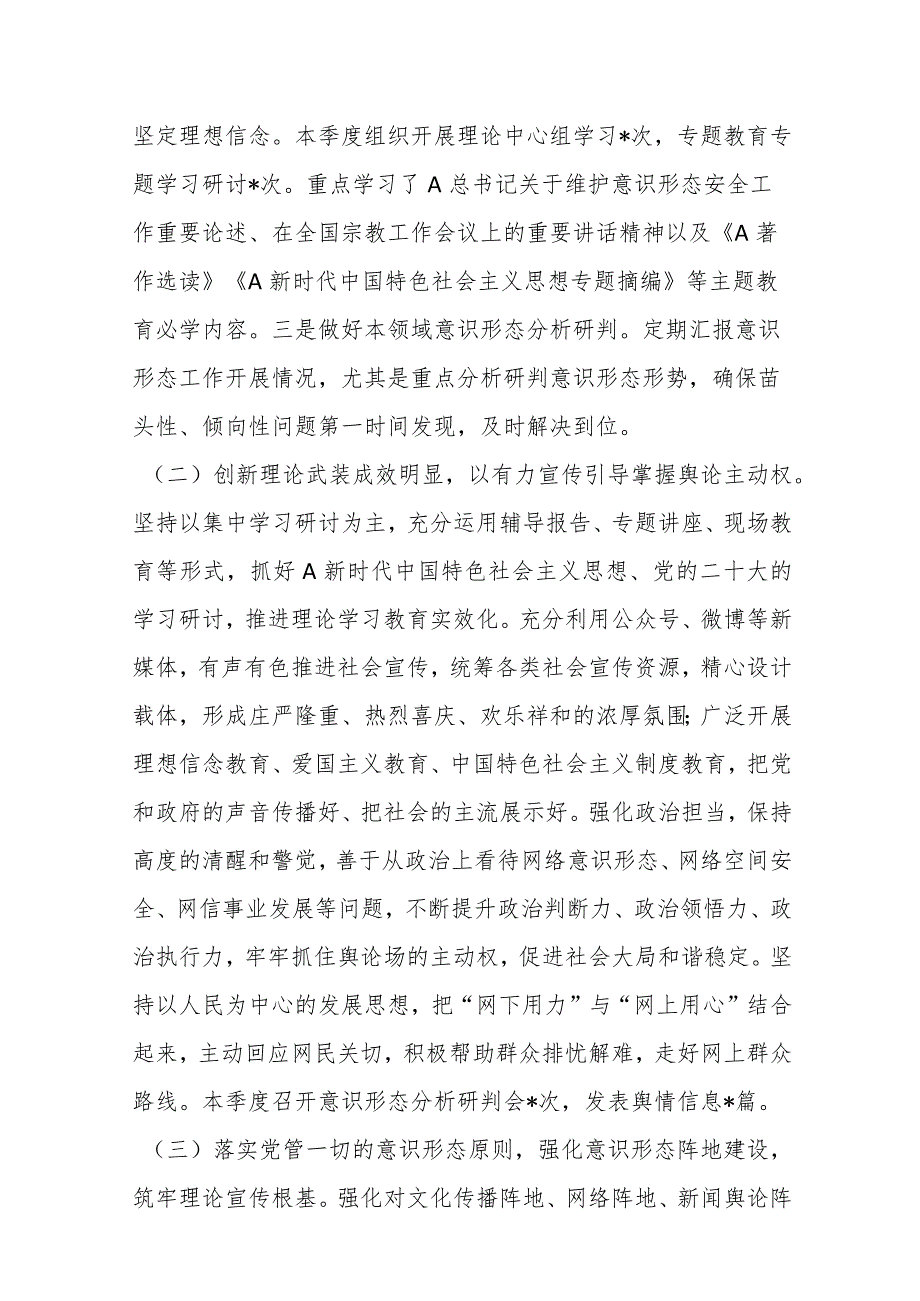 坚定理想信念。本季度组织开展理论中心组学习*次，专题教育专
题学习研讨*次。重点学习了 A 总书记关于维护意识形态安全工
作重要论述、在全国宗教工作会议上的重要讲话精神以及《A 著
作选读》《A 新时代中国特色社会主义思想专题摘编》等主题教
育必学内容。三是做好本领域意识形态分析研判。定期汇报意识
形态工作开展情况，尤其是重点分析研判意识形态形势，确保苗
头性、倾向性问题第一时间发现，及时解决到位。
（二）创新理论武装成效明显，以有力宣传引导掌握舆论主动权。
坚持以集中学习研讨为主，充分运用辅导报告、专题讲座、现场教
育等形式，抓好 A 新时代中国特色社会主义思想、党的二十大的
学习研讨，推进理论学习教育实效化。充分利用公众号、微博等新
媒体，有声有色推进社会宣传，统筹各类社会宣传资源，精心设计
载体，形成庄严隆重、热烈喜庆、欢乐祥和的浓厚氛围；广泛开展
理想信念教育、爱国主义教育、中国特色社会主义制度教育，把党
和政府的声音传播好、把社会的主流展示好。强化政治担当，保持
高度的清醒和警觉，善于从政治上看待网络意识形态、网络空间安
全、网信事业发展等问题，不断提升政治判断力、政治领悟力、政
治执行力，牢牢抓住舆论场的主动权，促进社会大局和谐稳定。坚
持以人民为中心的发展思想，把“网下用力”与“网上用心”结合
起来，主动回应网民关切，积极帮助群众排忧解难，走好网上群众
路线。本季度召开意识形态分析研判会*次，发表舆情信息*篇。
（三）落实党管一切的意识形态原则，强化意识形态阵地建设，
筑牢理论宣传根基。强化对文化传播阵地、网络阵地、新闻舆论阵